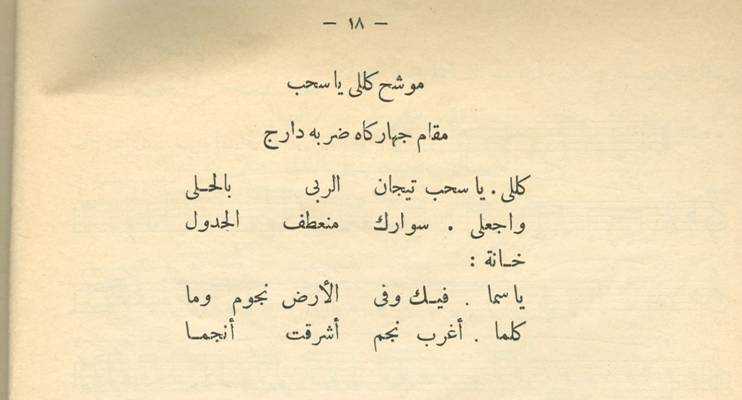 — ١٨ —
موشح كللى يا سحب
مقام جهاركاه ضربه دارج
كللى . يا سحب تيجان الربى بالحلى
واجعلى . سوارك منعطف الجدول
خانة :
يا سما . فيك وفى الأرض نجوم وما
كلما . أغرب نجم أشرقت أنجما